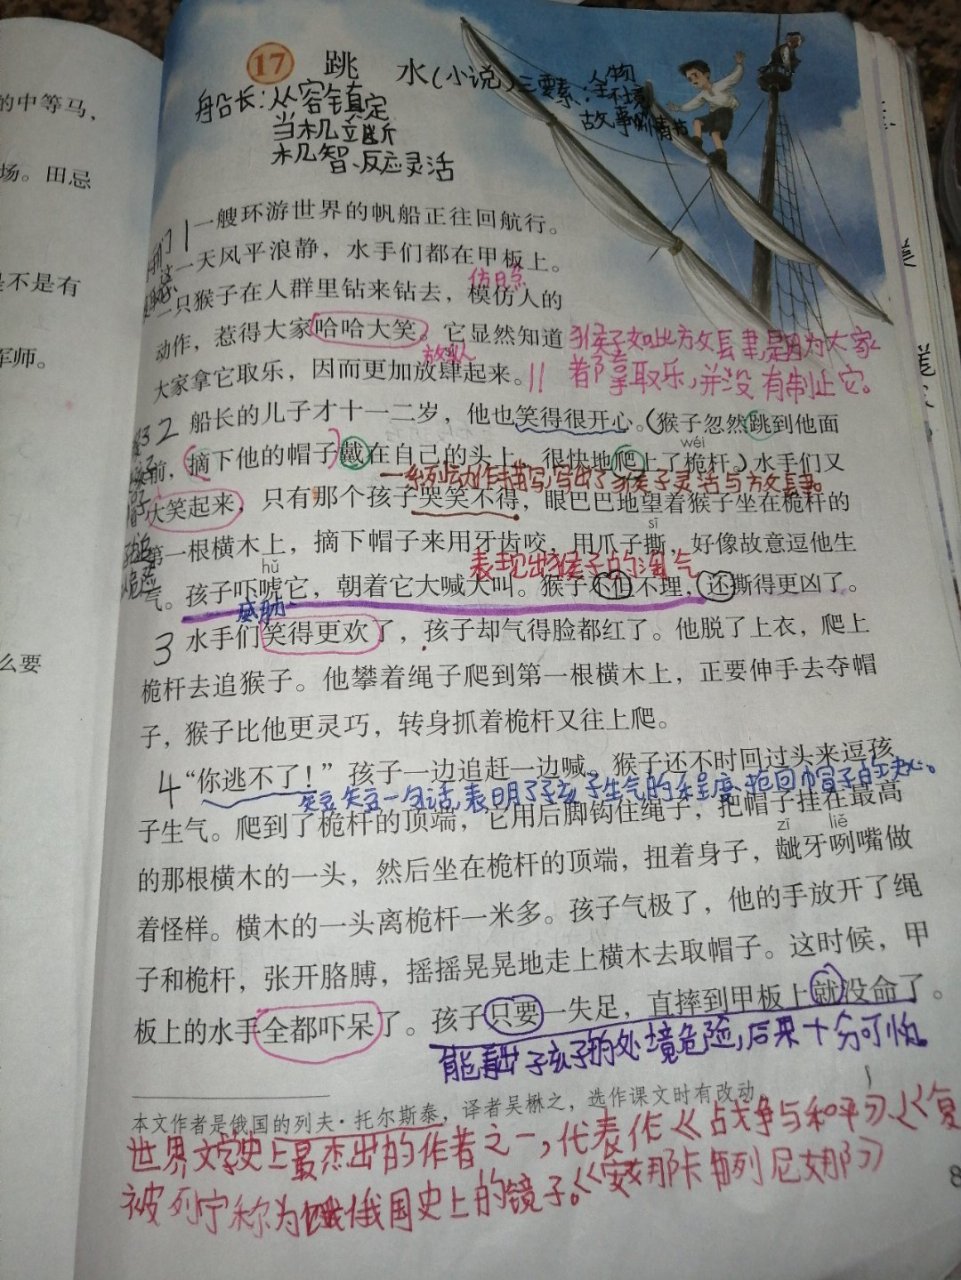 的中等马，
场。田忌
是不是有
军师。
么要
17 跳水(小说)三要素：人物
环境
故事
船长：从容镇定
当机立断
机智、反应灵活
一艘环游世界的帆船正往回航行。
这一天风平浪静，水手们都在甲板上。
一只猴子在人群里钻来钻去，模仿人的
动作，惹得大家哈哈大笑。它显然知道
猴子如此放肆是因为大家
大家拿它取乐，因而更加放肆起来。||
都拿取乐,并没有制止它。
2 船长的儿子才十一二岁，他也笑得很开心。(猴子忽然跳到他面
wéi
前，摘下他的帽子戴在自己的头上，很快地爬上了桅杆。)水手们又
一系列动作描写,写出了猴子灵活与放肆。
大笑起来，只有那个孩子哭笑不得，眼巴巴地望着猴子坐在桅杆的
sī
第一根横木上，摘下帽子来用牙齿咬，用爪子撕，好像故意逗他生
表现出猴子的淘气
hǔ
气。孩子吓唬它，朝着它大喊大叫。猴子不但不理，还撕得更凶了。
威胁
3 水手们笑得更欢了，孩子却气得脸都红了。他脱了上衣，爬上
桅杆去追猴子。他攀着绳子爬到第一根横木上，正要伸手去夺帽
子，猴子比他更灵巧，转身抓着桅杆又往上爬。
4 “你逃不了！”孩子一边追赶一边喊。猴子还不时回过头来逗孩
短短一句话,表明了孩子生气的程度,抢回帽子的决心。
子生气。爬到了桅杆的顶端，它用后脚钩住绳子，把帽子挂在最高
zī liě
的那根横木的一头，然后坐在桅杆的顶端，扭着身子，龇牙咧嘴做
着怪样。横木的一头离桅杆一米多。孩子气极了，他的手放开了绳
子和桅杆，张开胳膊，摇摇晃晃地走上横木去取帽子。这时候，甲
板上的水手全都吓呆了。孩子只要一失足，直摔到甲板上就没命了。
能看出孩子的处境危险,后果十分可怕。
本文作者是俄国的列夫·托尔斯泰，译者吴楙之，选作课文时有改动。
世界文学史上最杰出的作者之一,代表作《战争与和平》、《复
被列宁称为俄国史上的镜子。《安娜卡列尼娜》